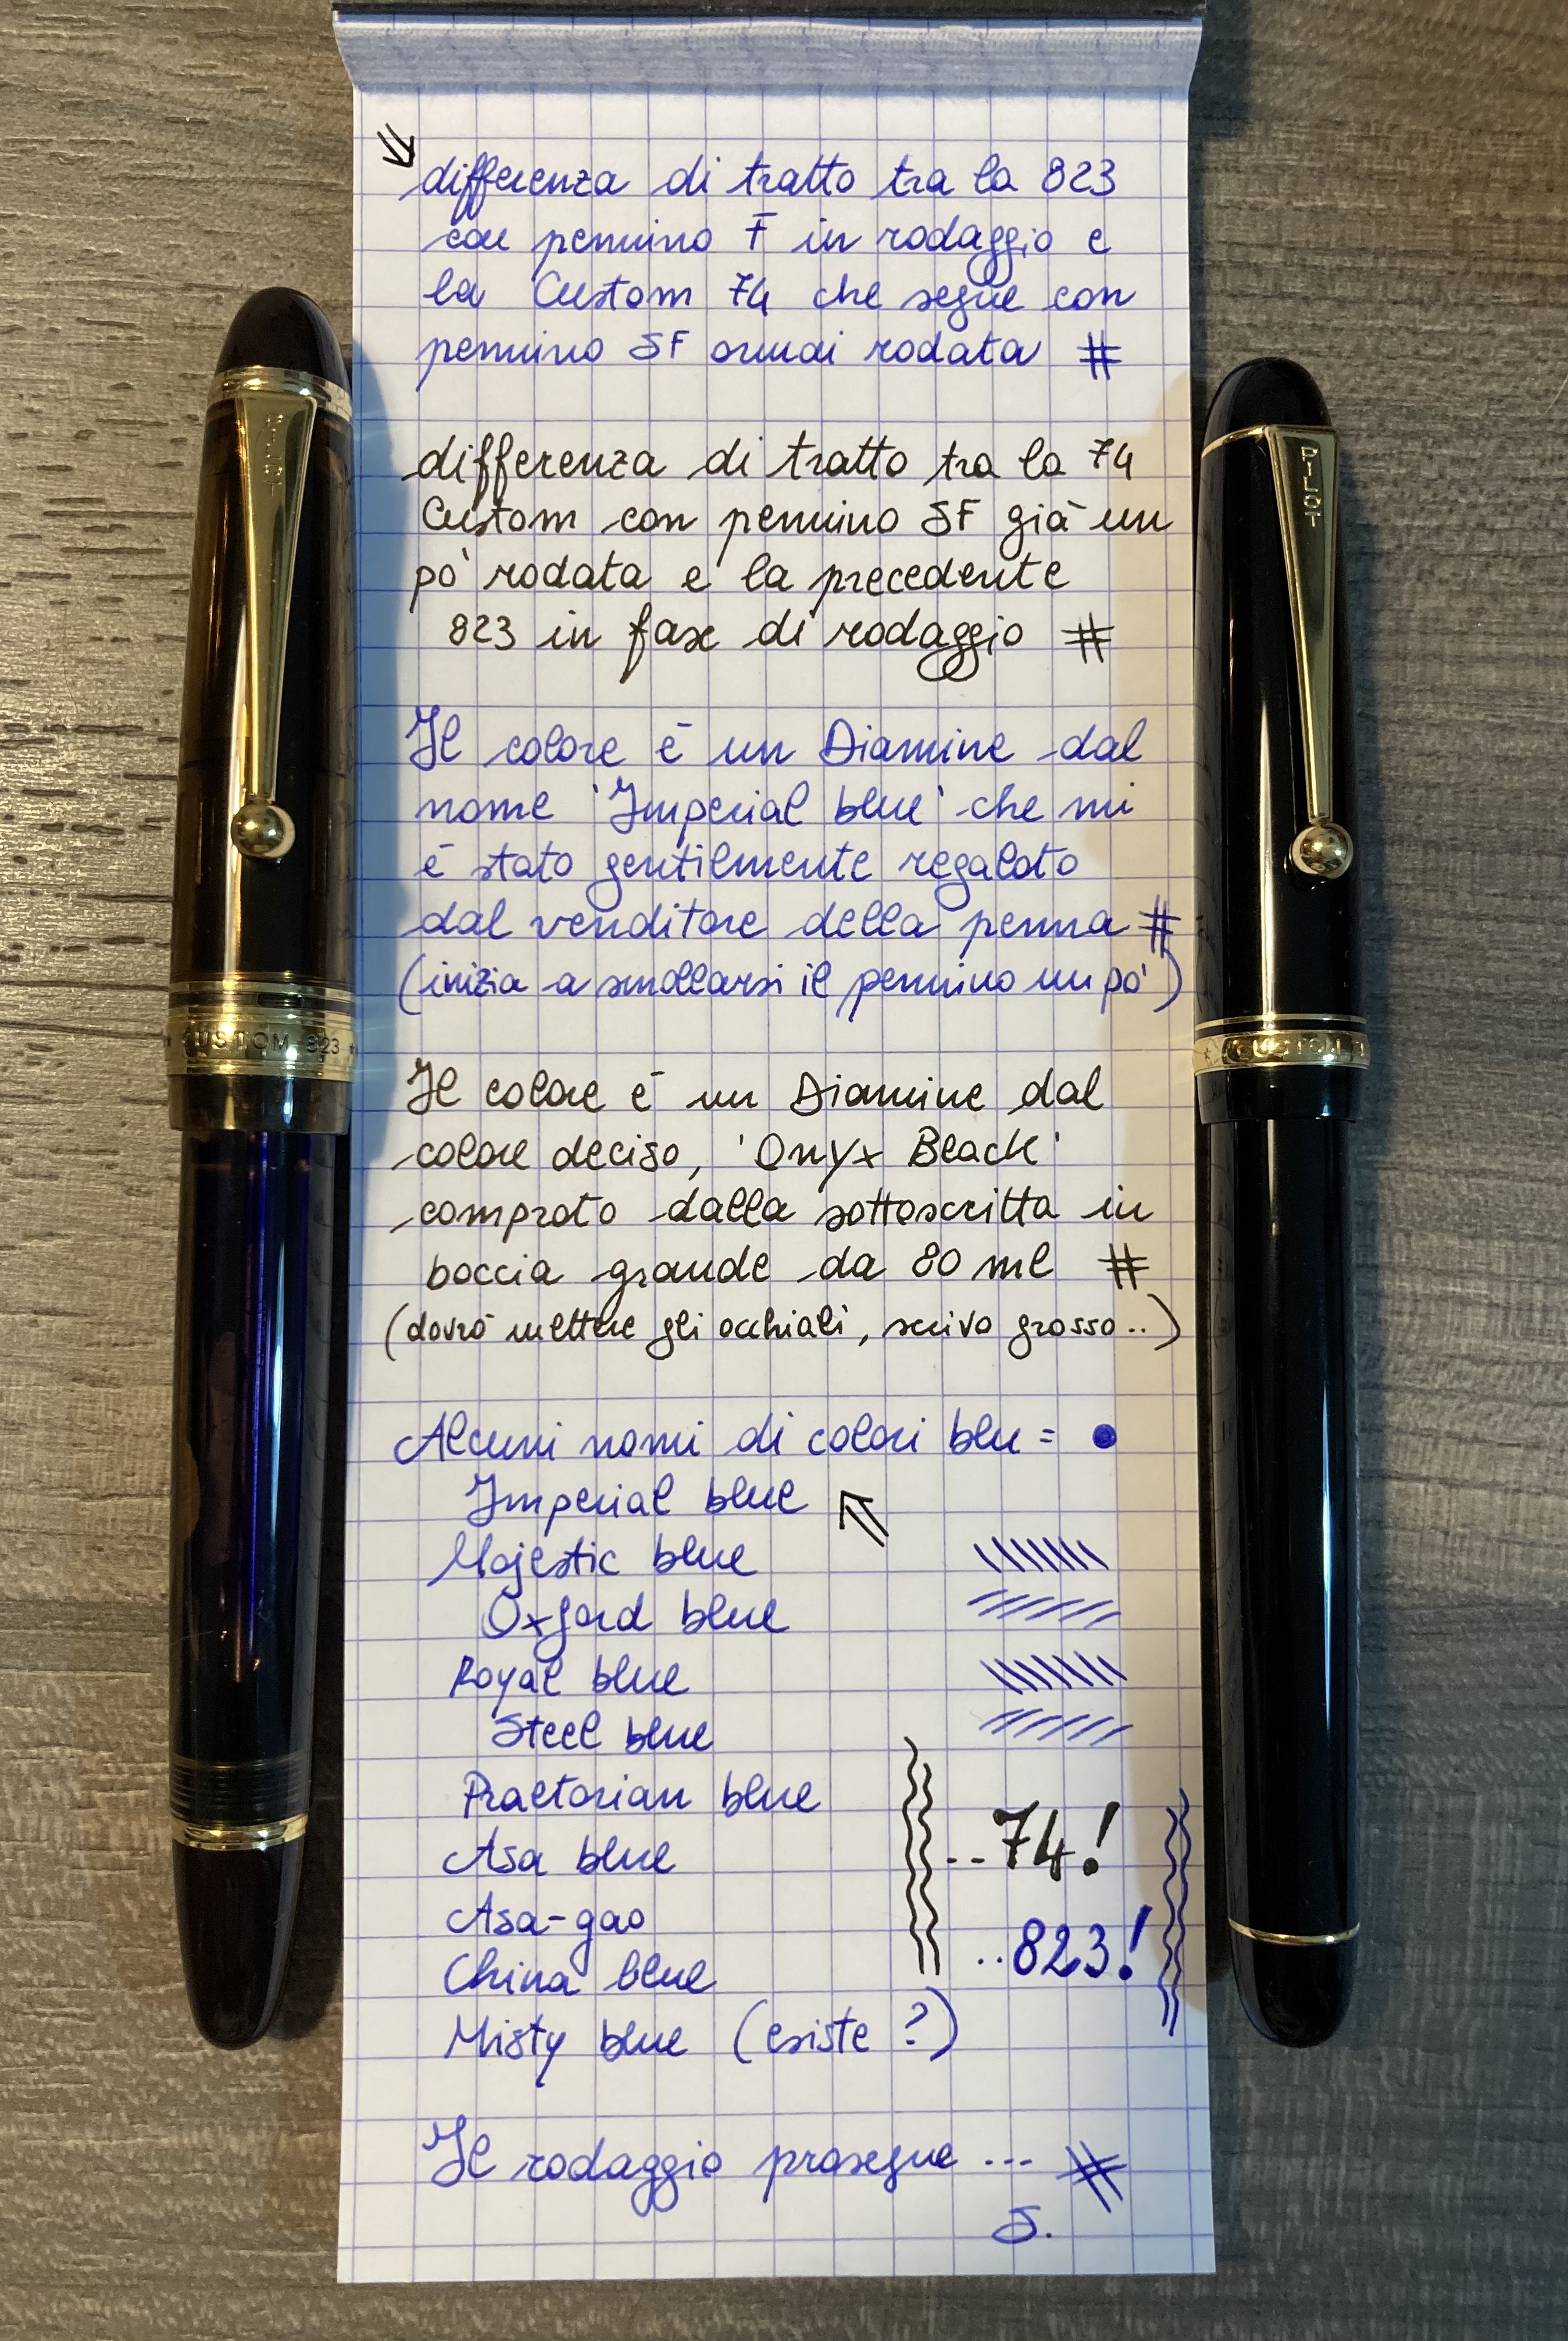 differenza di tratto tra la 823
con pennino F in rodaggio e
la Custom 74 che segue con
pennino SF ormai rodata #
differenza di tratto tra la 74
Custom con pennino SF già un
pò rodata e la precedente
823 in fase di rodaggio #
Il colore è un Diamine dal
nome 'Imperial blue' che mi
è stato gentilmente regalato
dal venditore della penna #
(inizia a smollarsi il pennino un pò)
Il colore è un Diamine dal
colore deciso, 'Onyx Black'
comprato dalla sottoscritta in
boccia grande da 80 ml #
(dovrò mettere gli occhiali, scrivo grosso..)
Alcuni nomi di colori blu =
Imperial blue
Majestic blue
Oxford blue
Royal blue
Steel blue
Praetorian blue
Asa blue
--74!
Asa-gao
..823!
China blue
Misty blue (esiste ?)
Il rodaggio prosegue --- #
S.
PILOT
CUSTOM 823
PILOT
CUSTOM